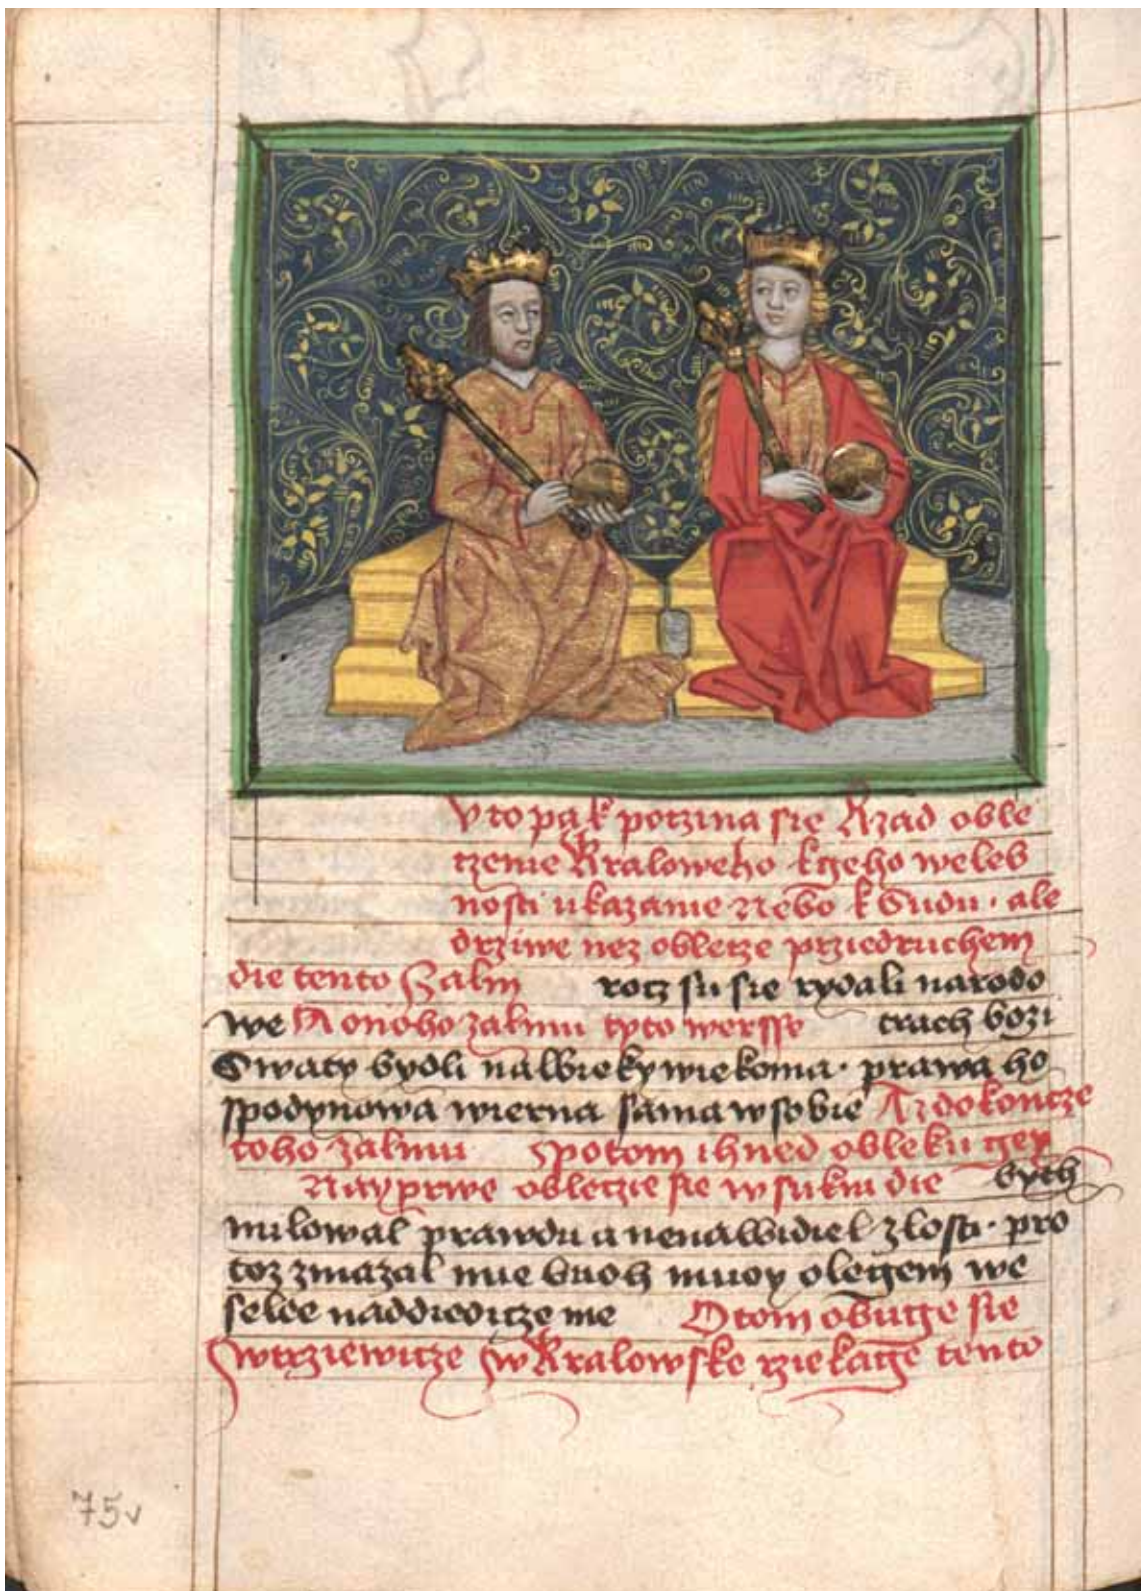 Vto pak potzina sie Rzad oble
tzenie Kraloweho kgeho weleb
nosti ukazanie Nebo k Sudu . ale
drziwe nez obletze przied ruchem
die tento Szalm rotz su sie rydali narodo
we A onoho zalmu tyto wersse trach bozi
Swaty bydli na wieky wiekoma . prawa ho
spodynowa wierna sama w sobie Az do koncze
toho zalmu potom ihned obleku gey
Nayprwe obletzie sie w sukni die bych
milowal prawdu a nenawidiel zlosti . pro
toz zmazal mie buoh muoy olegem we
sele naddiedicze me Otom obuge sie
Wtrziewicze w Kralowske rziekage tento
75v